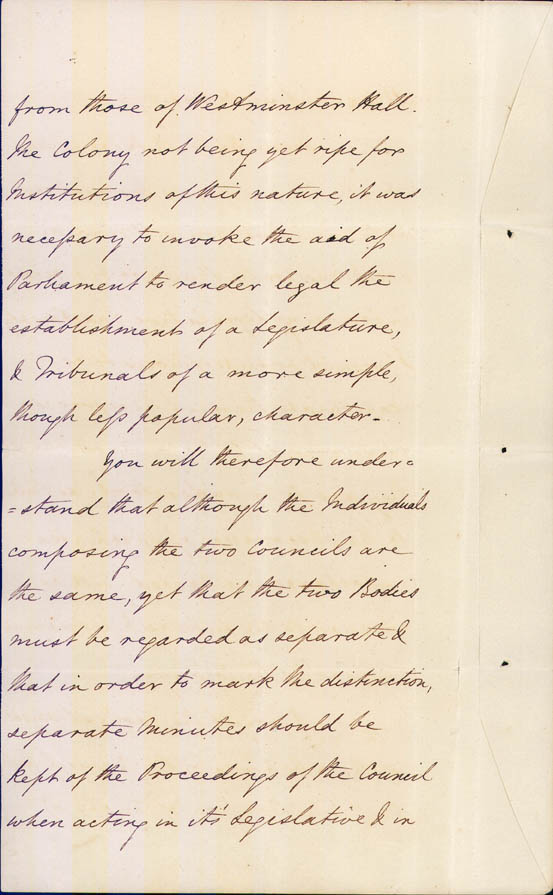 from those of Westminster Hall.
The Colony not being yet ripe for
Institutions of this nature, it was
necessary to invoke the aid of
Parliament to render legal the
establishment of a Legislature,
& Tribunals of a more simple,
though less popular, character -
You will therefore under=
=stand that although the Individuals
composing the two Councils are
the same, yet that the two Bodies
must be regarded as separate &
that in order to mark the distinction,
separate Minutes should be
kept of the Proceedings of the Council
when acting in it's Legislative & in